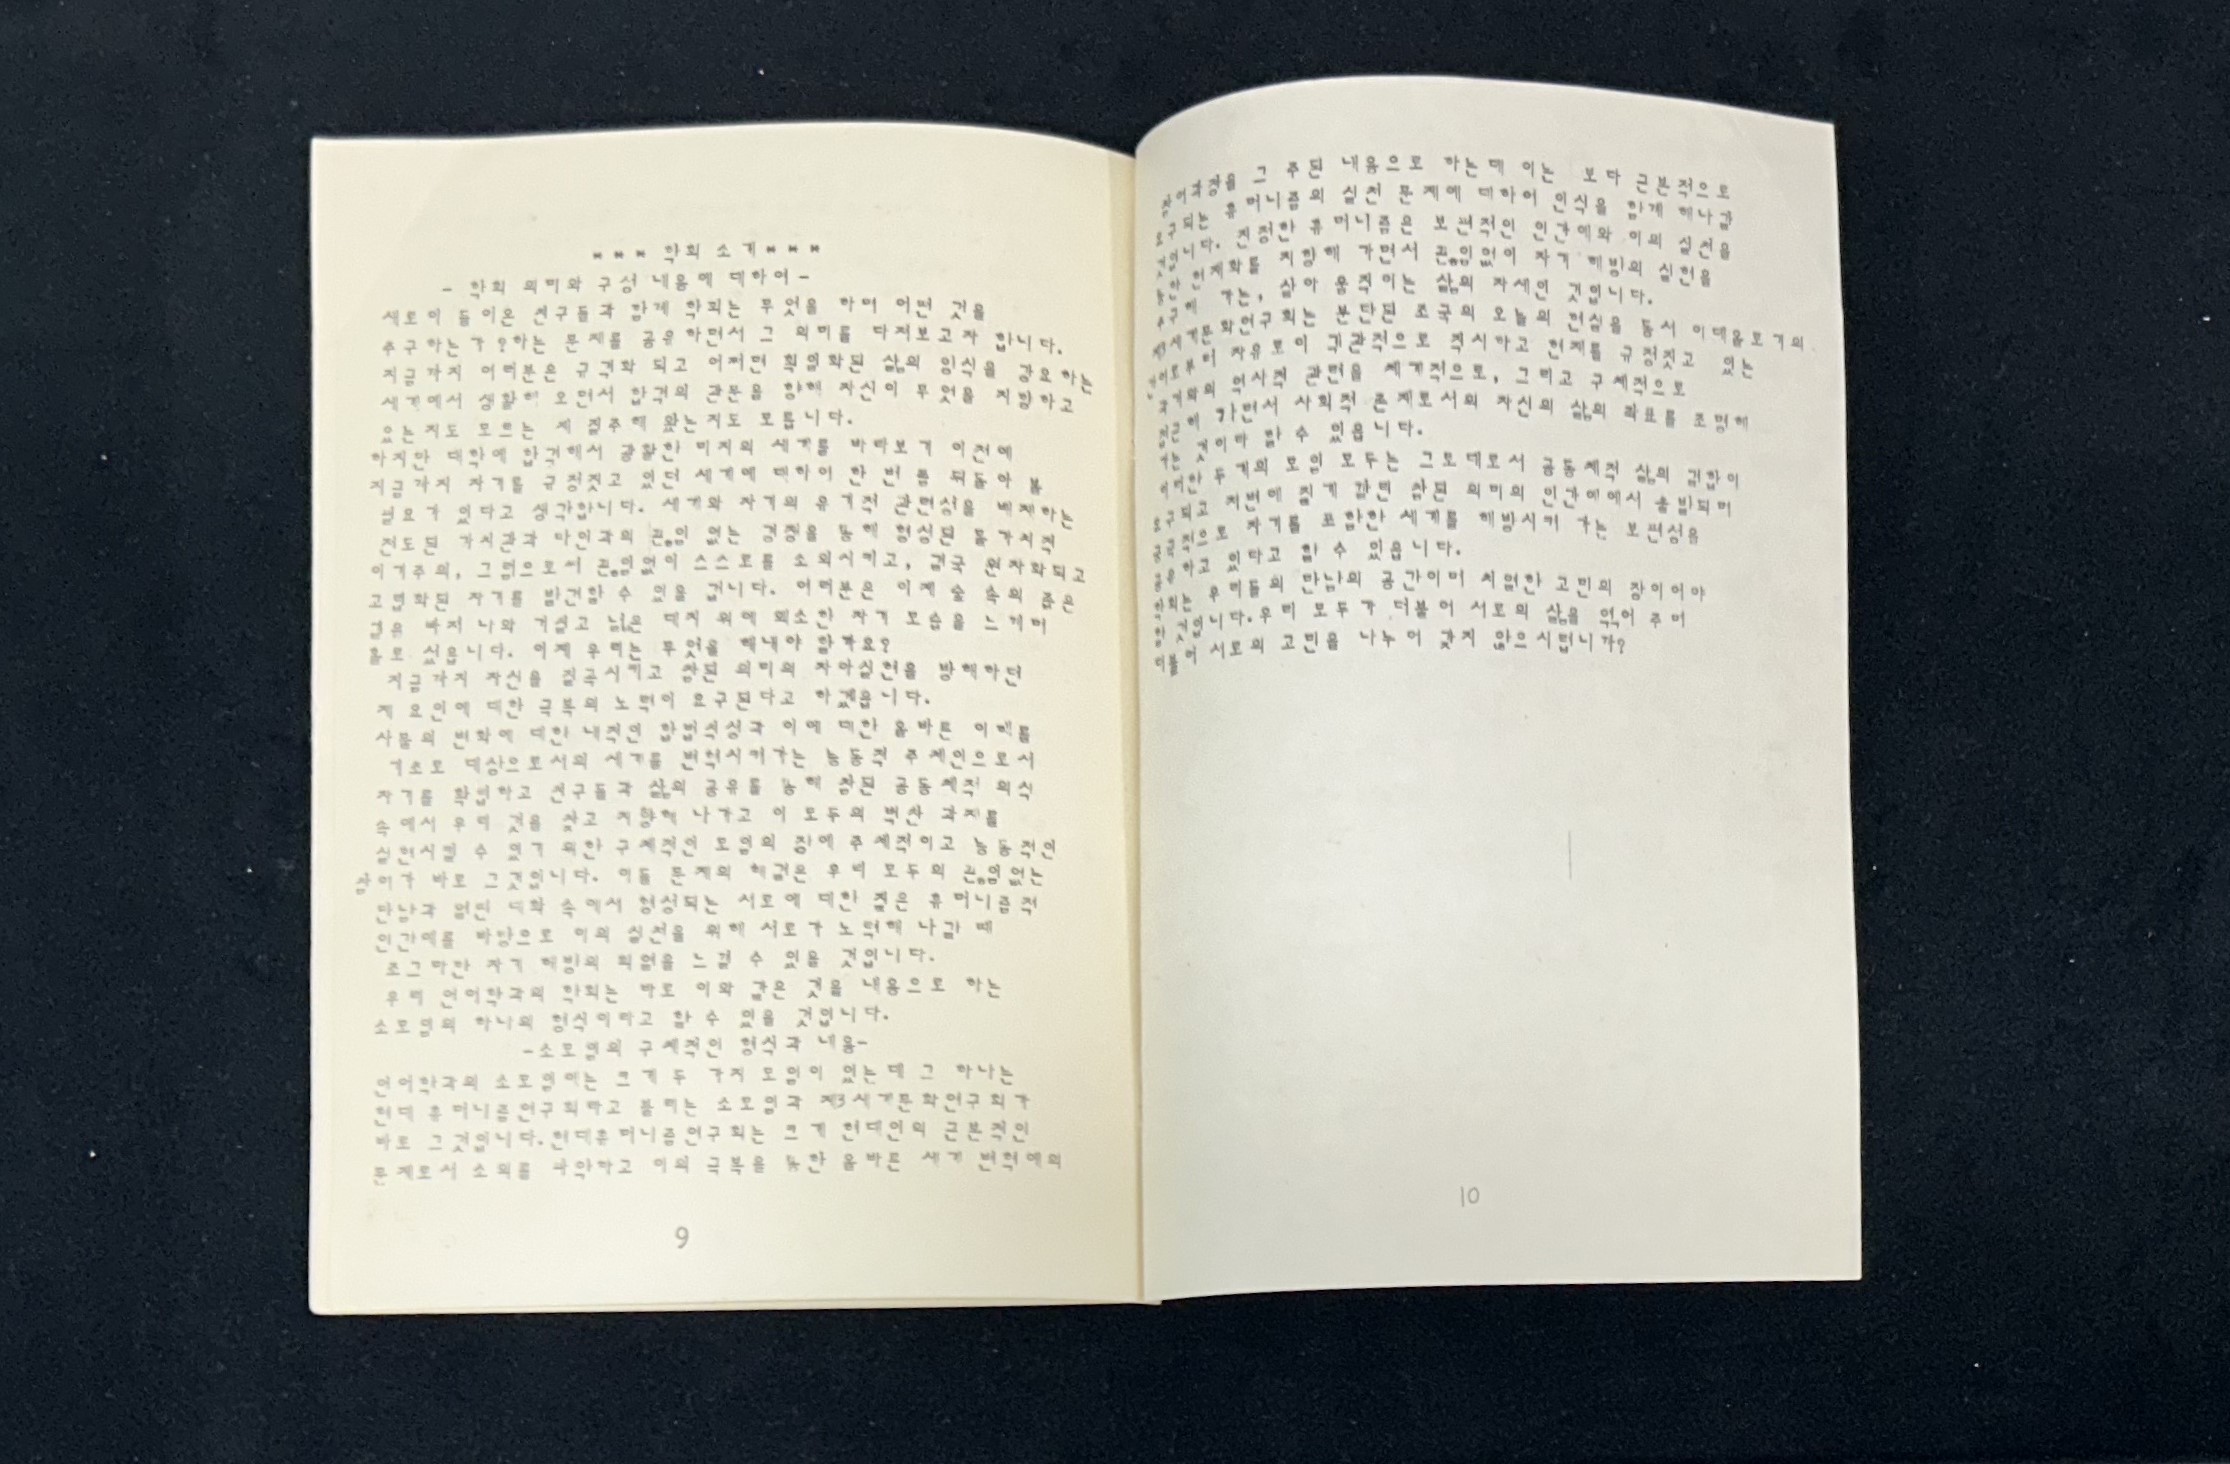 *** 학회 소개 ***
- 학회 의미와 구성 내용에 대하여 -
새로이 들어온 친구들과 함께 학회는 무엇을 하며 어떤 것을
추구하는가?하는 문제를 공유하면서 그 의미를 다져보고자 합니다.
지금까지 여러분은 규격화 되고 어쩌면 획일화된 삶의 양식을 강요하는
세계에서 생활해 오면서 합격의 관문을 향해 자신이 무엇을 지향하고
있는지도 모르는 채 질주해 왔는지도 모릅니다.
하지만 대학에 합격해서 광활한 미지의 세계를 바라보기 이전에
지금까지 자기를 규정짓고 있던 세계에 대하여 한 번 쯤 되돌아 볼
필요가 있다고 생각합니다. 세계와 자기의 유기적 관련성을 배제하는
전도된 가치관과 타인과의 끊임 없는 경쟁을 통해 형성된 몰가치적
이기주의, 그럼으로써 끊임없이 스스로를 소외시키고, 결국 원자화되고
고립화된 자기를 발견할 수 있을 겁니다. 여러분은 이제 숲 속의 좁은
길을 빠져 나와 거칠고 넓은 대지 위에 왜소한 자기 모습을 느끼며
홀로 섰읍니다. 이제 우리는 무엇을 해내야 할까요?
지금까지 자신을 질곡시키고 참된 의미의 자아실현을 방해하던
제 요인에 대한 극복의 노력이 요구된다고 하겠읍니다.
사물의 변화에 대한 내적인 합법칙성과 이에 대한 올바른 이해를
기초로 대상으로서의 세계를 변혁시켜가는 능동적 주체인으로서
자기를 확립하고 친구들과 삶의 공유를 통해 참된 공동체적 의식
속에서 우리 것을 찾고 지향해 나가고 이 모두의 벅찬 과제를
실현시킬 수 있기 위한 구체적인 모임의 장에 주체적이고 능동적인
참여가 바로 그것입니다. 이들 문제의 해결은 우리 모두의 끊임없는
만남과 열띤 대화 속에서 형성되는 서로에 대한 짙은 휴머니즘적
인간애를 바탕으로 이의 실천을 위해 서로가 노력해 나갈 때
조그마한 자기 해방의 희열을 느낄 수 있을 것입니다.
우리 언어학과의 학회는 바로 이와 같은 것을 내용으로 하는
소모임의 하나의 형식이라고 할 수 있을 것입니다.
-소모임의 구체적인 형식과 내용-
언어학과의 소모임에는 크게 두 가지 모임이 있는데 그 하나는
현대 휴머니즘연구회라고 불리는 소모임과 제3세계문학연구회가
바로 그것입니다.현대휴머니즘연구회는 크게 현대인의 근본적인
문제로서 소외를 파악하고 이의 극복을 통한 올바른 세계 변혁에의
9
참여과정을 그 주된 내용으로 하는데 이는 보다 근본적으로
요구되는 휴머니즘의 실천 문제에 대하여 인식을 함께 해나갈
것입니다. 진정한 휴머니즘은 보편적인 인간애와 이의 실천을
현재화를 지향해 가면서 끊임없이 자기 해방의 실현을
추구해 가는, 살아 움직이는 삶의 자세인 것입니다.
제3세계문학연구회는 분단된 조국의 오늘의 현실을 동서 이데올로기의
부터 자유로이 객관적으로 직시하고 현재를 규정짓고 있는
과거와의 역사적 관련을 세계적으로, 그리고 구체적으로
해 가면서 사회적 존재로서의 자신의 삶의 좌표를 조명해
보는 것이라 할 수 있읍니다.
이러한 두개의 모임 모두는 그모태로서 공동체적 삶의 결합이
요구되고 저변에 짙게 깔린 참된 의미의 인간애에서 출발되며
으로 자기를 포함한 세계를 해방시켜 가는 보편성을
하고 있다고 할 수 있읍니다.
학회는 우리들의 만남의 공간이며 치열한 고민의 장이어야
할 것입니다.우리 모두가 더불어 서로의 삶을 엮어 주며
서로의 고민을 나누어 갖지 않으시렵니까?
10